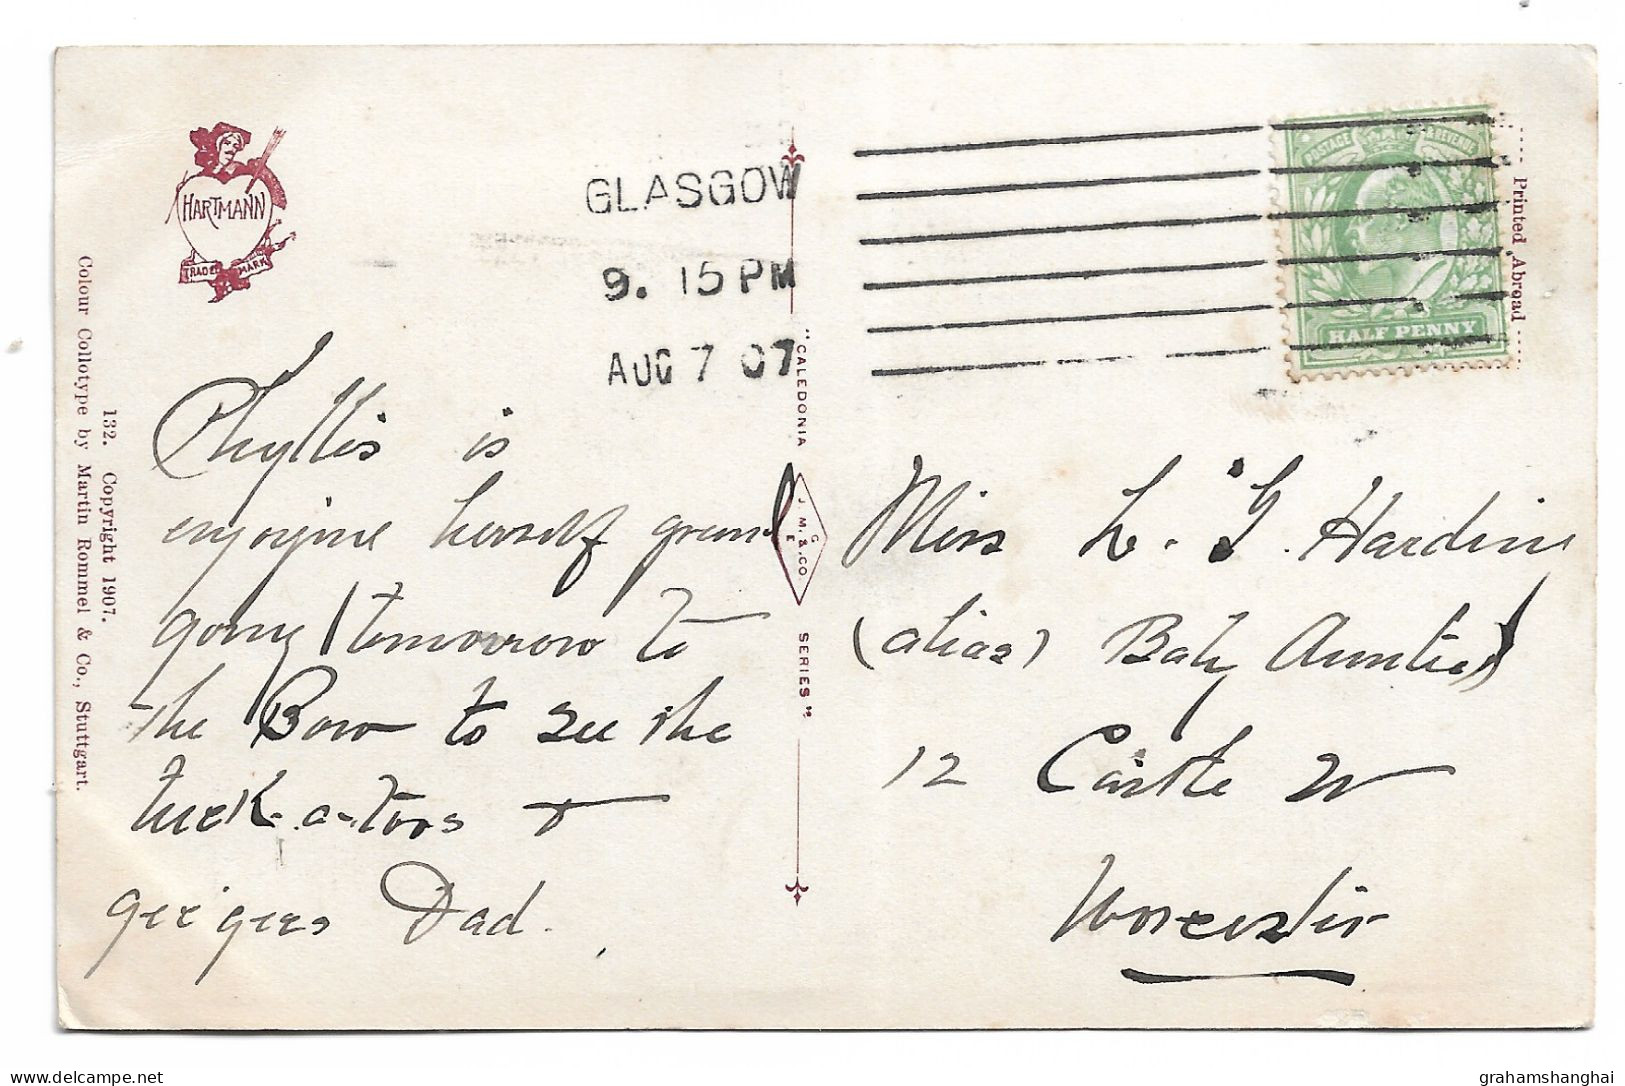 HARTMANN
TRADE MARK
Colour Collotype by Martin Rommel & Co., Stuttgart.
132. Copyright 1907.
GLASGOW
9. 15 PM
AUG 7 07
"CALEDONIA
J. M. & CO.
G E
SERIES"
POSTAGE & REVENUE
HALF PENNY
Printed Abroad
Phyllis is
enjoying herself grand
going tomorrow to
the Bow to see the
tuck-a-toos &
gee gees Dad.
Miss L. G. Harding
(alias) Baby Auntie)
12 Castle
Worcester
grahamshanghai